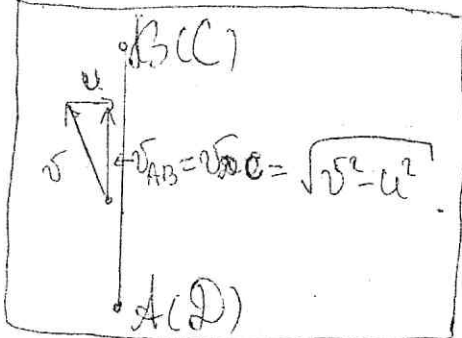 B(C)
u
v v_AB = v_DC = √(v² - u²)
A(D)